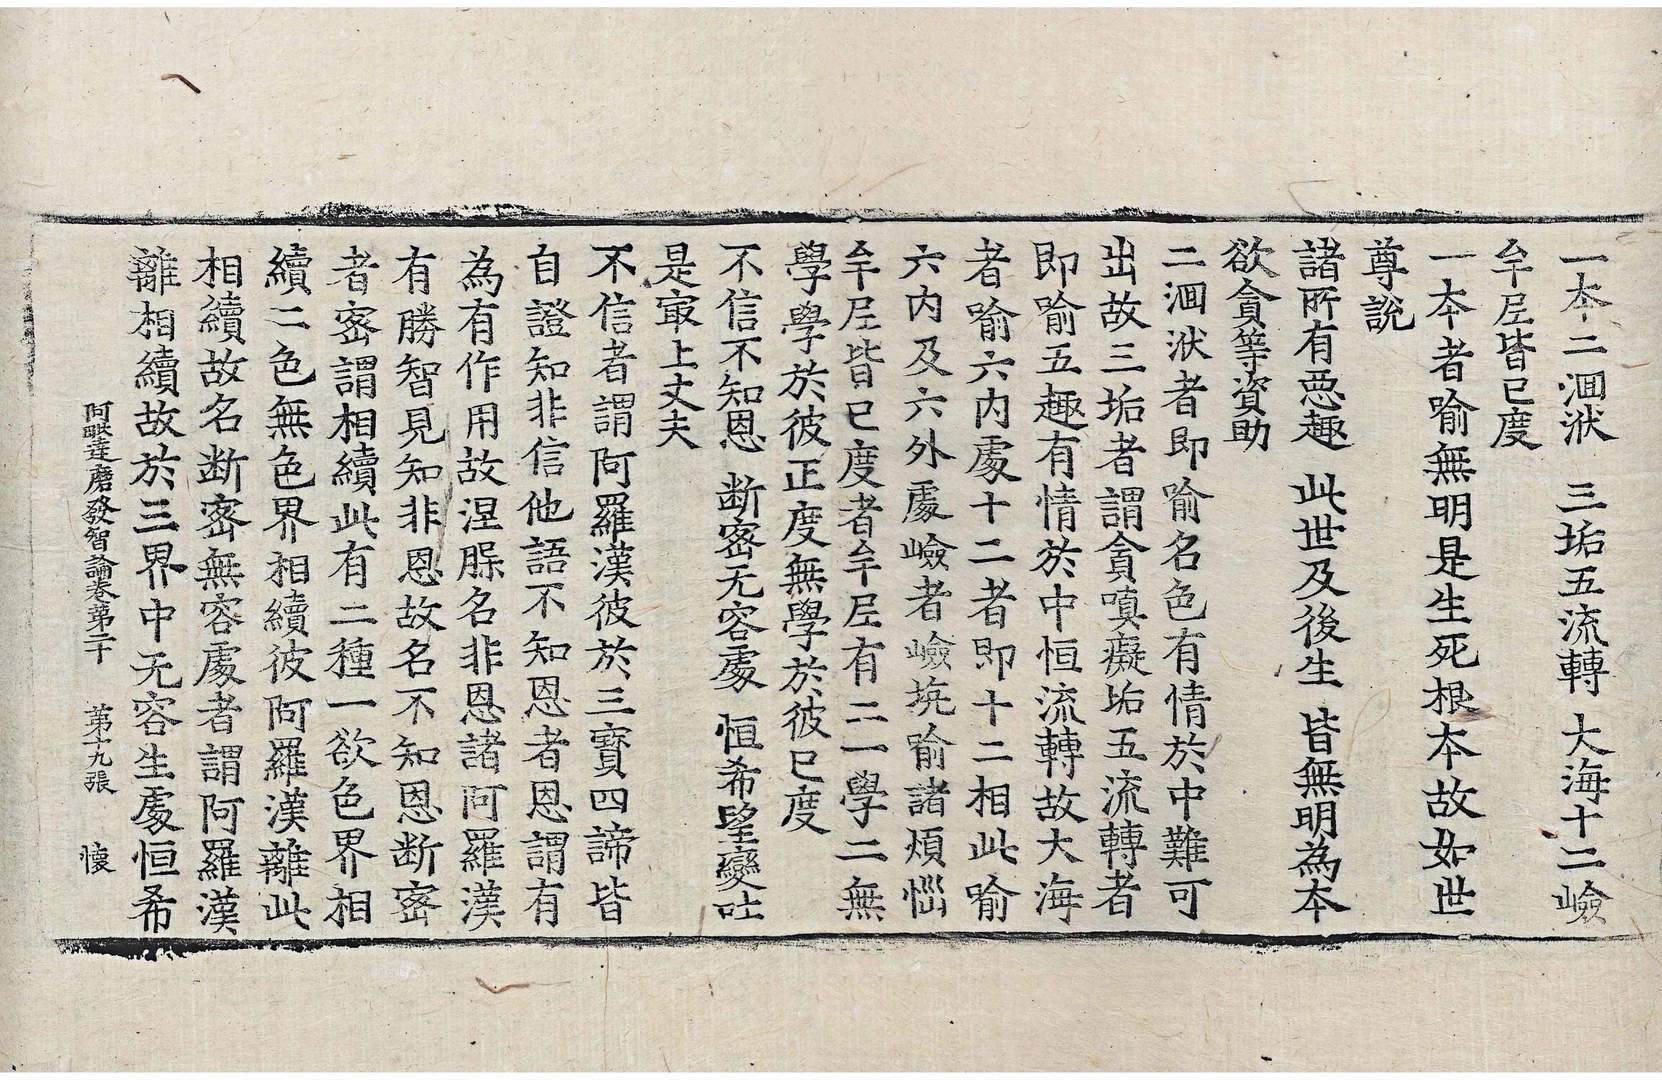 一本二洄洑　三垢五流轉　大海十二嶮
牟尼皆已度
一本者喻無明是生死根本故如世
尊說
諸所有惡趣　此世及後生　皆無明為本
欲貪等資助
二洄洑者即喻名色有情於中難可
出故三垢者謂貪嗔癡垢五流轉者
即喻五趣有情於中恒流轉故大海
者喻六內處十二者即十二相此喻
六內及六外處嶮者嶮㘫喻諸煩惱
牟尼皆已度者牟尼有二一學二無
學學於彼正度無學於彼已度
不信不知恩　断密无容處　恒希望變吐
是冣上丈夫
不信者謂阿羅漢彼於三寶四諦皆
自證知非信他語不知恩者恩謂有
為有作用故涅槃名非恩諸阿羅漢
有勝智見知非恩故名不知恩断密
者密謂相續此有二種一欲色界相
續二色無色界相續彼阿羅漢離此
相續故名断密無容處者謂阿羅漢
離相續故於三界中无容生處恒希
阿毗達磨發智論卷第二十　第十九張　懷